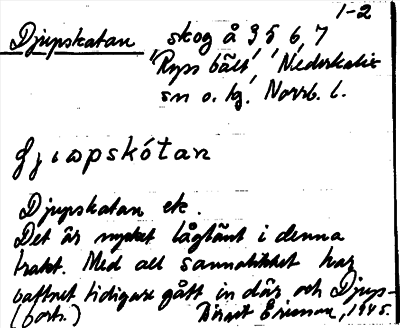 1-2
Djupskatan skog å 3, 5, 6, 7
Ryss bält, Nederkalix
sn o. tg. Norrb. l.
Djupskatan etc.
Det är mycket låglänt i denna
trakt. Med all sannolikhet har
vattnet tidigare gått in där och Djup-
(forts.) Birgit Ericsson, 1945.